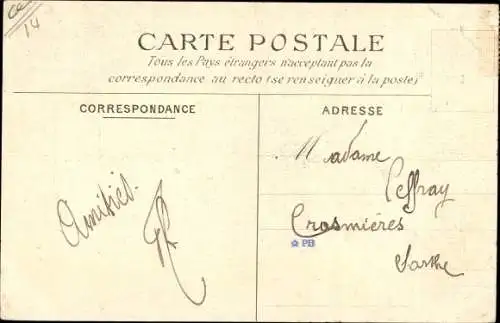 14
CARTE POSTALE
Tous les Pays étrangers n'acceptant pas la
correspondance au recto (se renseigner à la poste)
CORRESPONDANCE
ADRESSE
Amitiés.
Madame
Peffray
Crosmières
PB
Sarthe